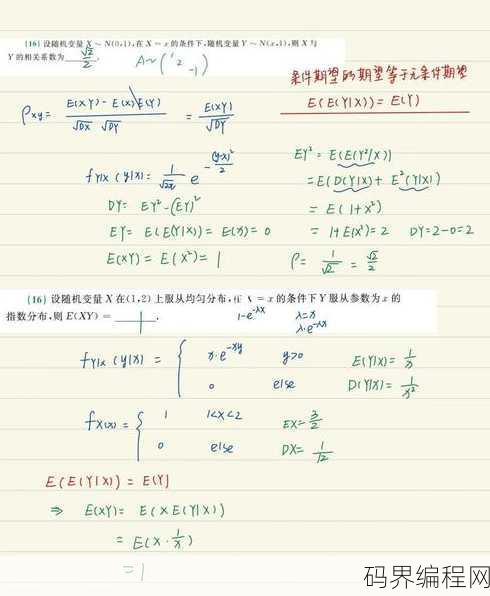 (16) 设随机变量 X ~ N(0,1),在 X = x 的条件下,随机变量 Y ~ N(x,1),则 X 与
Y 的相关系数为 √2/2 .
A~(1 2 -1)
条件期望的期望等于无条件期望
E(E(Y|X)) = E(Y)
ρxy = E(XY) - E(X)E(Y) / √DX √DY = E(XY) / √DY
fY|X (y|x) = 1/√2π e^-(y-x)²/2
DY = EY² - (EY)²
EY = E(E(Y|X)) = E(X) = 0
E(XY) = E(X²) = 1
EY² = E(E(Y²|X))
= E(D(Y|X) + E²(Y|X))
= E(1+X²)
= 1+E(X²) = 2 DY=2-0=2
ρ = 1/√2 = √2/2
(16) 设随机变量 X 在(1,2)上服从均匀分布,在 X = x 的条件下 Y 服从参数为 x 的
指数分布,则 E(XY) = 1 .
1-e^-λx λ=x
λ·e^-λx
fY|X (y|x) = { x·e^-xy y>0
0 else
E(Y|X) = 1/x
D(Y|X) = 1/x²
fX(x) = { 1 1<x<2
0 else
EX = 3/2
DX = 1/12
E(E(Y|X)) = E(Y)
⇒ E(XY) = E(X E(Y|X))
= E(X · 1/x)
= 1
码界编程网